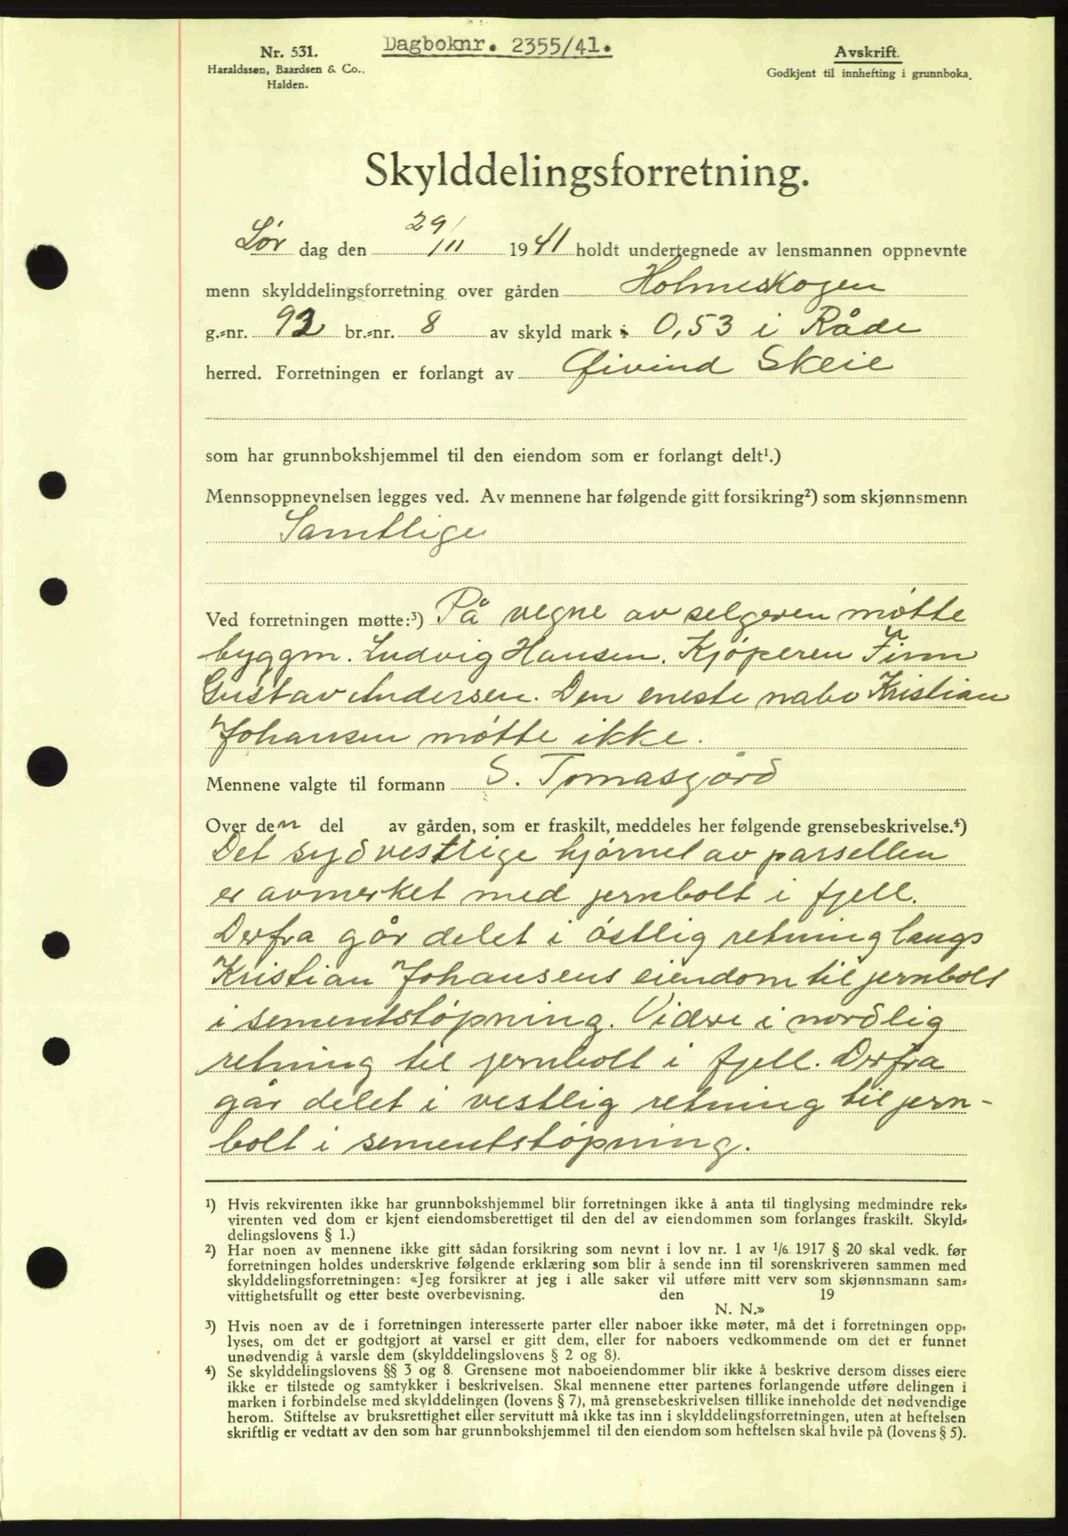 Dagboknr. 2355/41.
Nr. 531.
Haraldssen, Baardsen & Co..
Halden.
Avskrift.
Godkjent til innhefting i grunnboka.
Skylddelingsforretning.
Lør dag den 29/III 1941 holdt undertegnede av lensmannen oppnevnte
menn skylddelingsforretning over gården Holmeskogen
g.-nr. 92 br.-nr. 8 av skyld mark 0,53 i Råde
herred. Forretningen er forlangt av Øivind Skeie
som har grunnbokshjemmel til den eiendom som er forlangt delt¹.)
Mennsoppnevnelsen legges ved. Av mennene har følgende gitt forsikring²) som skjønnsmenn
Samtlige
Ved forretningen møtte:³) På vegne av selgeren møtte
byggm. Ludvig Hansen. Kjøperen Finn
Gustav Andersen. Den eneste nabo Kristian
Johansen møtte ikke.
Mennene valgte til formann S. Tomasgård
Over den del av gården, som er fraskilt, meddeles her følgende grensebeskrivelse.⁴)
Det sydvestlige hjørnet av parsellen
er avmerket med jernbolt i fjell.
Derfra går delet i østlig retning langs
Kristian Johansens eiendom til jernbolt
i sementstøpning. Videre i nordlig
retning til jernbolt i fjell. Derfra
går delet i vestlig retning til jern-
bolt i sementstøpning.
¹) Hvis rekvirenten ikke har grunnbokshjemmel blir forretningen ikke å anta til tinglysing medmindre rek-
virenten ved dom er kjent eiendomsberettiget til den del av eiendommen som forlanges fraskilt. Skyld-
delingslovens § 1.)
²) Har noen av mennene ikke gitt sådan forsikring som nevnt i lov nr. 1 av 1/6 1917 § 20 skal vedk. før
forretningen holdes underskrive følgende erklæring som blir å sende inn til sorenskriveren sammen med
skylddelingsforretningen: «Jeg forsikrer at jeg i alle saker vil utføre mitt verv som skjønnsmann sam-
vittighetsfullt og etter beste overbevisning. den 19
N. N.»
³) Hvis noen av de i forretningen interesserte parter eller naboer ikke møter, må det i forretningen opp-
lyses, om det er godtgjort at varsel er gitt dem, eller for naboers vedkommende om det er funnet
unødvendig å varsle dem (skylddelingslovens § 2 og 8).
⁴) Se skylddelingslovens §§ 3 og 8. Grensene mot naboeiendommer blir ikke å beskrive dersom disses eiere
ikke er tilstede og samtykker i beskrivelsen. Skal mennene etter partenes forlangende utføre delingen i
marken i forbindelse med skylddelingen (lovens § 7), må grensebeskrivelsen tillike inneholde det nødvendige
herom. Stiftelse av bruksrettighet eller servitutt må ikke tas inn i skylddelingsforretningen, uten at heftelsen
skriftlig er vedtatt av den som har grunnbokshjemmel til den eiendom som heftelsen skal hvile på (lovens § 5).